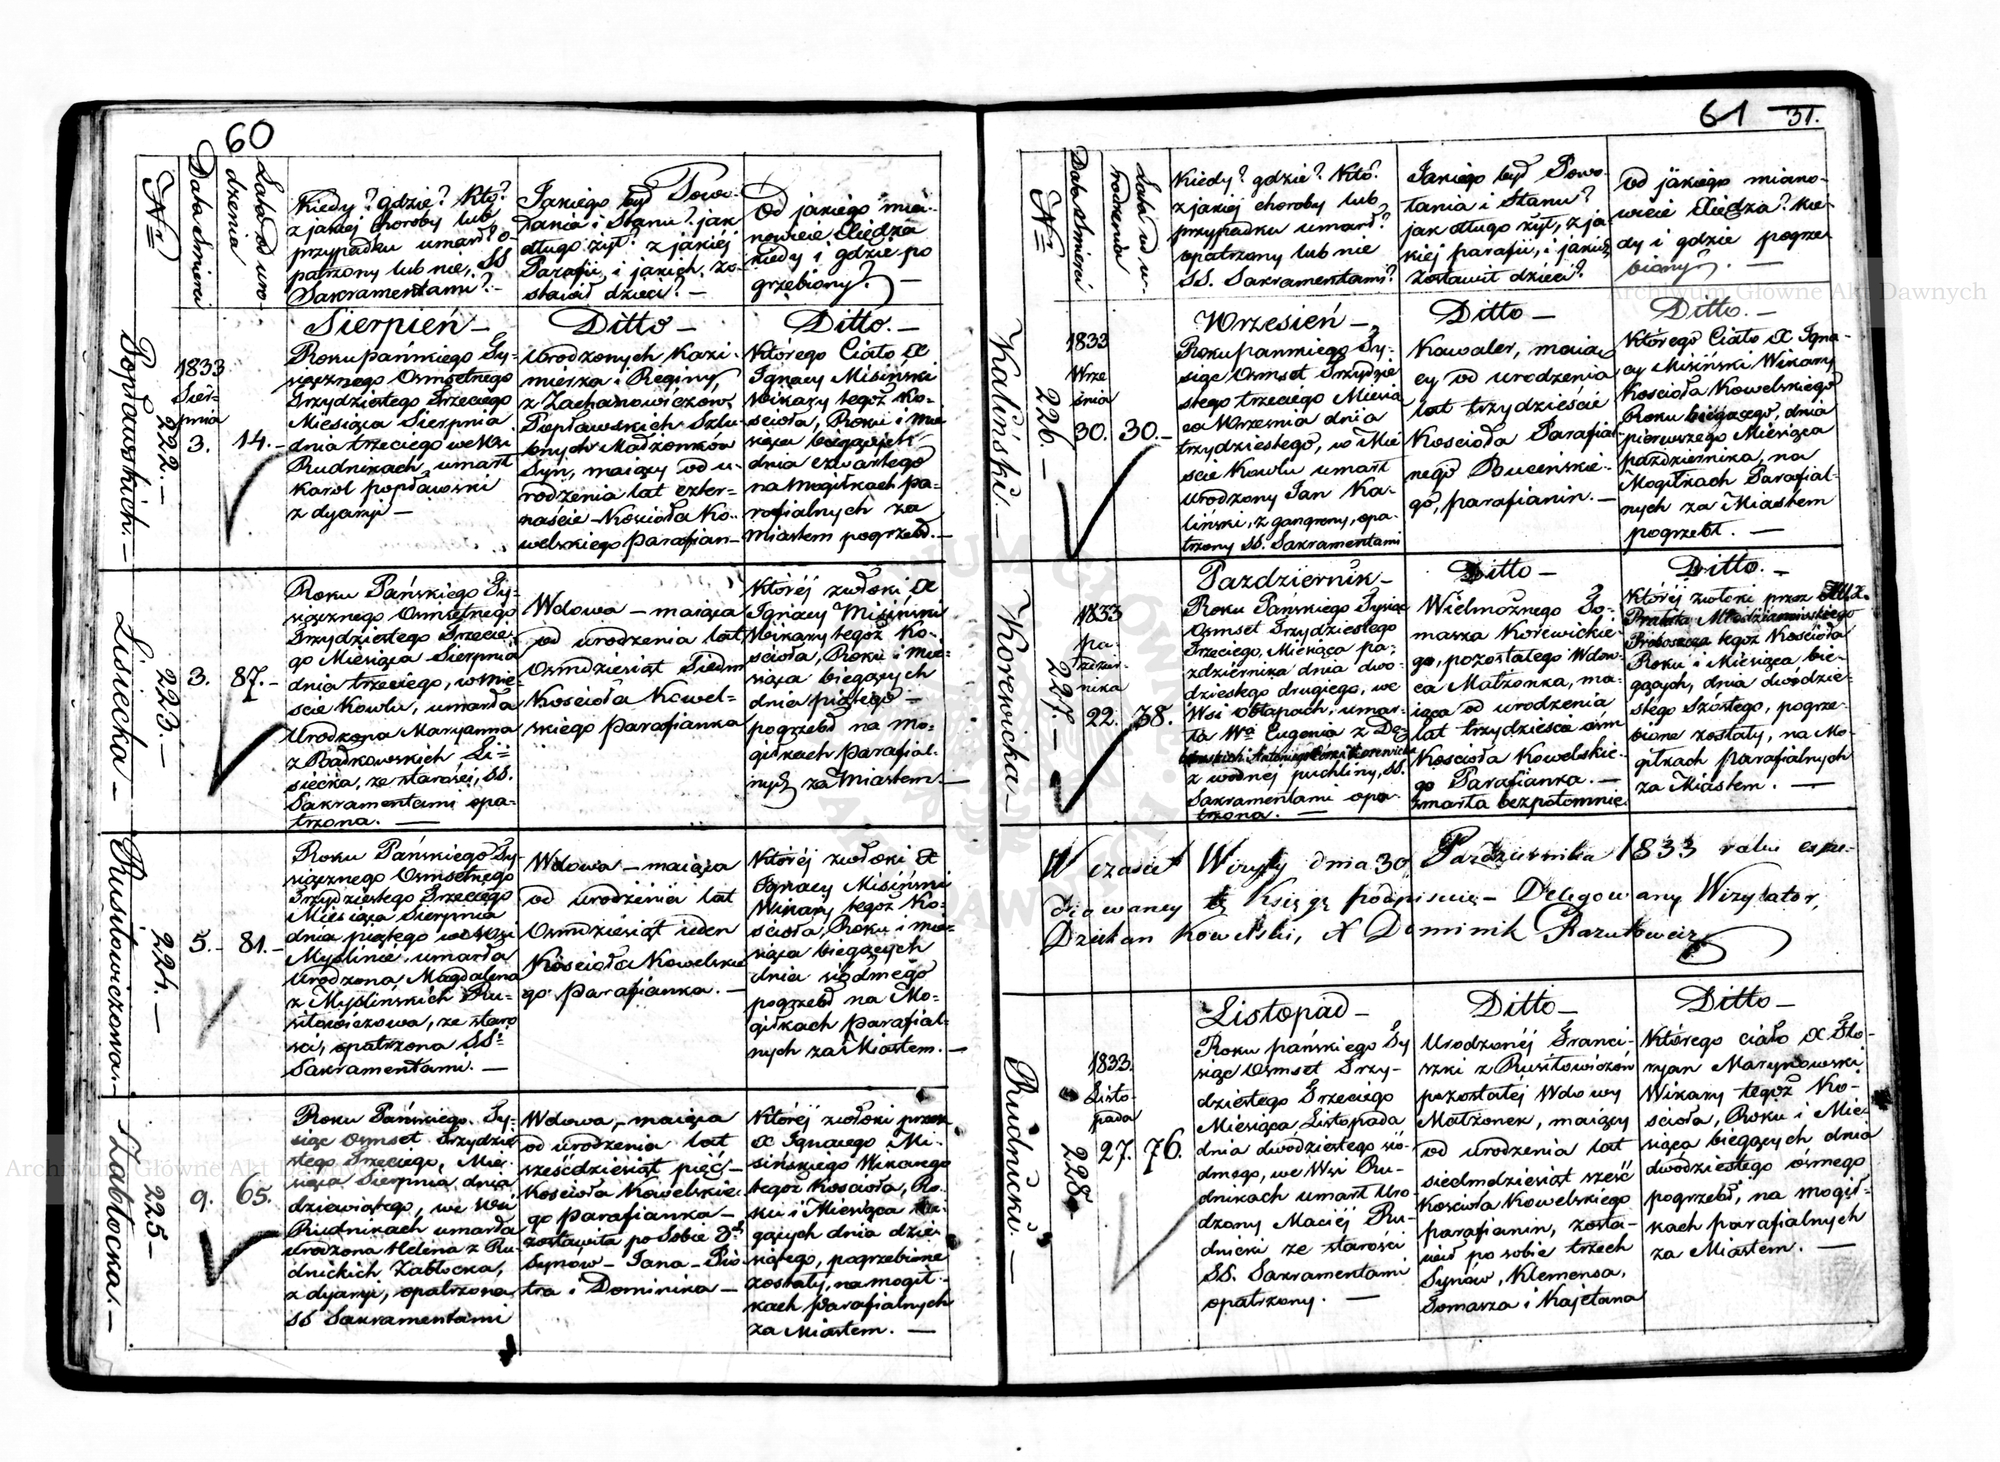 60
Nr
Data śmierci
Lata od uro-
dzenia
Kiedy? gdzie? Kto?
z jakiej choroby lub
przypadku umarł? o-
patrzony lub nie, SS
Sakramentami? —
Jakiego był Powo-
łania i Stanu? jak
długo żył? z jakiéj
Parafii, i jakich, zo-
stawił dzieci? —
Od jakiego mia-
nowicie Xiędza
kiedy i gdzie po
grzebiony? —
Popławskich. —
222. —
1833
Sier-
pnia
3.
14. —
Sierpień —
Roku pańskiego Ty-
siącznego Osmsetnego
Trzydziestego Trzeciego
Miesiąca Sierpnia
dnia trzeciego we Wsi
Rudnikach, umarł
Karol Popławski
z dyaryi —
Ditto —
Urodzonych Kazi-
mierza i Reginy,
z Zachanowiczow
Popławskich Szlu-
bnych Małżonków
Syn, maiący od u-
rodzenia lat czter-
naście — Kościoła Ko-
welskiego parafian —
Ditto. —
Którego Ciało X
Ignacy Misiński
Wikary tegoż Ko-
ścioła, Roku i mie
siąca bieżących
dnia czwartego
na mogiłkach pa-
rafialnych za
Miastem pogrzebł. —
Lisiecka —
223. —
3.
87. —
Roku Pańskiego Ty-
siącznego Osmsetnego
Trzydziestego Trzecie-
go Miesiąca Sierpnia
dnia trzeciego, w mie-
ście Kowlu, umarła
Urodzona Maryanna
z Badkowskich Li-
siecka, ze starości, SS.
Sakramentami opa-
trzona. —
Wdowa — maiąca
od urodzenia lat
Osmdziesiąt Siedm
Kościoła Kowel-
skiego parafianka
Któréj zwłoki X
Ignacy Misiński
Wikary tegoż Ko-
ścioła, Roku i mie-
siąca bieżących
dnia piątego —
pogrzebł na mo-
giłkach parafial-
nych za Miastem. —
Rusiłowiczowa. —
224. —
5. —
81. —
Roku Pańskiego Ty-
siącznego Osmsetnego
Trzydziestego Trzeciego
Miesiąca Sierpnia
dnia piątego we Wsi
Myślinie, umarła
Urodzona Magdalena
z Myślińskich Ru-
siłowiczowa, ze staro
ści, opatrzona SS:
Sakramentami. —
Wdowa — maiąca
od urodzenia lat
Osmdziesiąt ieden
Kościoła Kowelskie
go parafianka. —
Któréj zwłoki X
Ignacy Misiński
Wikary tegoż Ko-
ścioła, Roku i mie-
siąca bieżących
dnia siódmego
pogrzebł na Mo-
giłkach parafial-
nych za Miastem. —
Zabłocka. —
225 —
9.
65.
Roku Pańskiego Ty-
siąc Osmset Trzydzie
stego Trzeciego, Mie-
siąca Sierpnia dnia
dziewiątego, we Wsi
Rudnikach umarła
urodzona Helena z Ru-
dnickich Zabłocka,
z dyaryi, opatrzona
SS Sakramentami
Wdowa, — maiąca
od urodzenia lat
sześćdziesiąt pięć —
Kościoła Kowelskie-
go parafianka —
zostawiła po Sobie 3ch
Synów — Jana — Pio
tra i Dominika —
Któréj zwłoki przez
X Ignacego Mi-
sińskiego Wikarego
tegoż Kościoła, Ro-
ku i Miesiąca bie-
żących dnia dzie-
siątego, pogrzebione
zostały, na mogił-
kach parafialnych
za Miastem. —
61
31.
Nr
Data śmierci
Lata od u-
rodzenia
Kiedy? gdzie? Kto?
z jakiej choroby lub
przypadku umarł?
opatrzony lub nie
SS. Sakramentami?
Jakiego był Powo-
łania i Stanu?
jak długo żył, z ja
kiéj parafii, i jakich
zostawił dzieci?
Od jakiego miano-
wicie Xiędza? Kie-
dy i gdzie pogrze-
biony? —
Kaliński. —
226. —
1833
Wrze
śnia
30.
30. —
Wrzesień —
Roku pańskiego Ty-
siąc Osmset Trzydzie
stego trzeciego Miesią
ca Września dnia
trzydziestego, w Mie
ście Kowlu umarł
Urodzony Jan Ka-
liński, z gangreny, opa-
trzony SS. Sakramentami
Ditto —
Kawaler, maią
cy od urodzenia
lat trzydzieście
Kościoła Parafial
nego Buceńskie-
go, parafianin. —
Ditto. —
Którego Ciało X Igna-
cy Misiński Wikary
Kościoła Kowelskiego
Roku bieżącego, dnia
pierwszego Miesiąca
października, na
Mogiłkach Parafial-
nych za Miastem
pogrzebł. —
Korewicka —
227. —
1833
pa-
ździer-
nika
22.
38.
Pazdziernik —
Roku Pańskiego Tysiąc
Osmset Trzydziestego
Trzeciego, Miesiąca pa-
ździernika dnia dwu-
dziestego drugiego, we
Wsi Obłapach, umar-
ła Wa Eugenia z
z wodnej puchliny, SS.
Sakramentami opa-
trzona. —
Ditto —
Wielmożnego To-
masza Korewickie-
go, pozostałego Wdow-
ca Małżonka, ma-
iąca od urodzenia
lat trzydzieście ośm
Kościoła Kowelskie-
go Parafianka. —
zmarła bezpotomnie
Ditto. —
Któréj zwłoki przez
Prałata Młodzianowskiego
Proboszcza tegoż Kościoła
Roku i Miesiąca bie-
żących, dnia dwudzie-
stego szóstego, pogrze-
bione zostały, na Mo-
giłkach parafialnych
za Miastem. —
W czasie Wizyty dnia 30 Pazdziernika 1833 roku expe-
diowaney tę Księgę podpisuię — Delegowany Wizytator,
Dziekan Kowelski, X Dominik Razutowicz
Rudnicki. —
228.
1833.
Listo-
pada
27.
76.
Listopad —
Roku pańskiego Ty
siąc Osmset Trzy-
dziestego Trzeciego
Miesiąca Listopada
dnia dwudziestego sió-
dmego, we Wsi Ru-
dnikach umarł Uro-
dzony Maciéj Ru-
dnicki ze starości
SS. Sakramentami
opatrzony. —
Ditto —
Urodzonéj Franci-
szki z Rusiłowiczów
pozostałéj Wdowy
Małżonek, maiący
od urodzenia lat
siedmdziesiąt sześć
Kościoła Kowelskiego
parafianin, zosta-
wił po sobie trzech
Synów, Klemensa,
Tomasza i Kajetana
Ditto —
Którego ciało X Flo-
ryan Marynowski
Wikary tegoż Ko-
ścioła, Roku i Mie-
siąca bieżących dnia
dwudziestego ósmego
pogrzebł, na mogił-
kach parafialnych
za Miastem. —
Archiwum Główne Akt Dawnych
Archiwum Główne Akt Dawnych